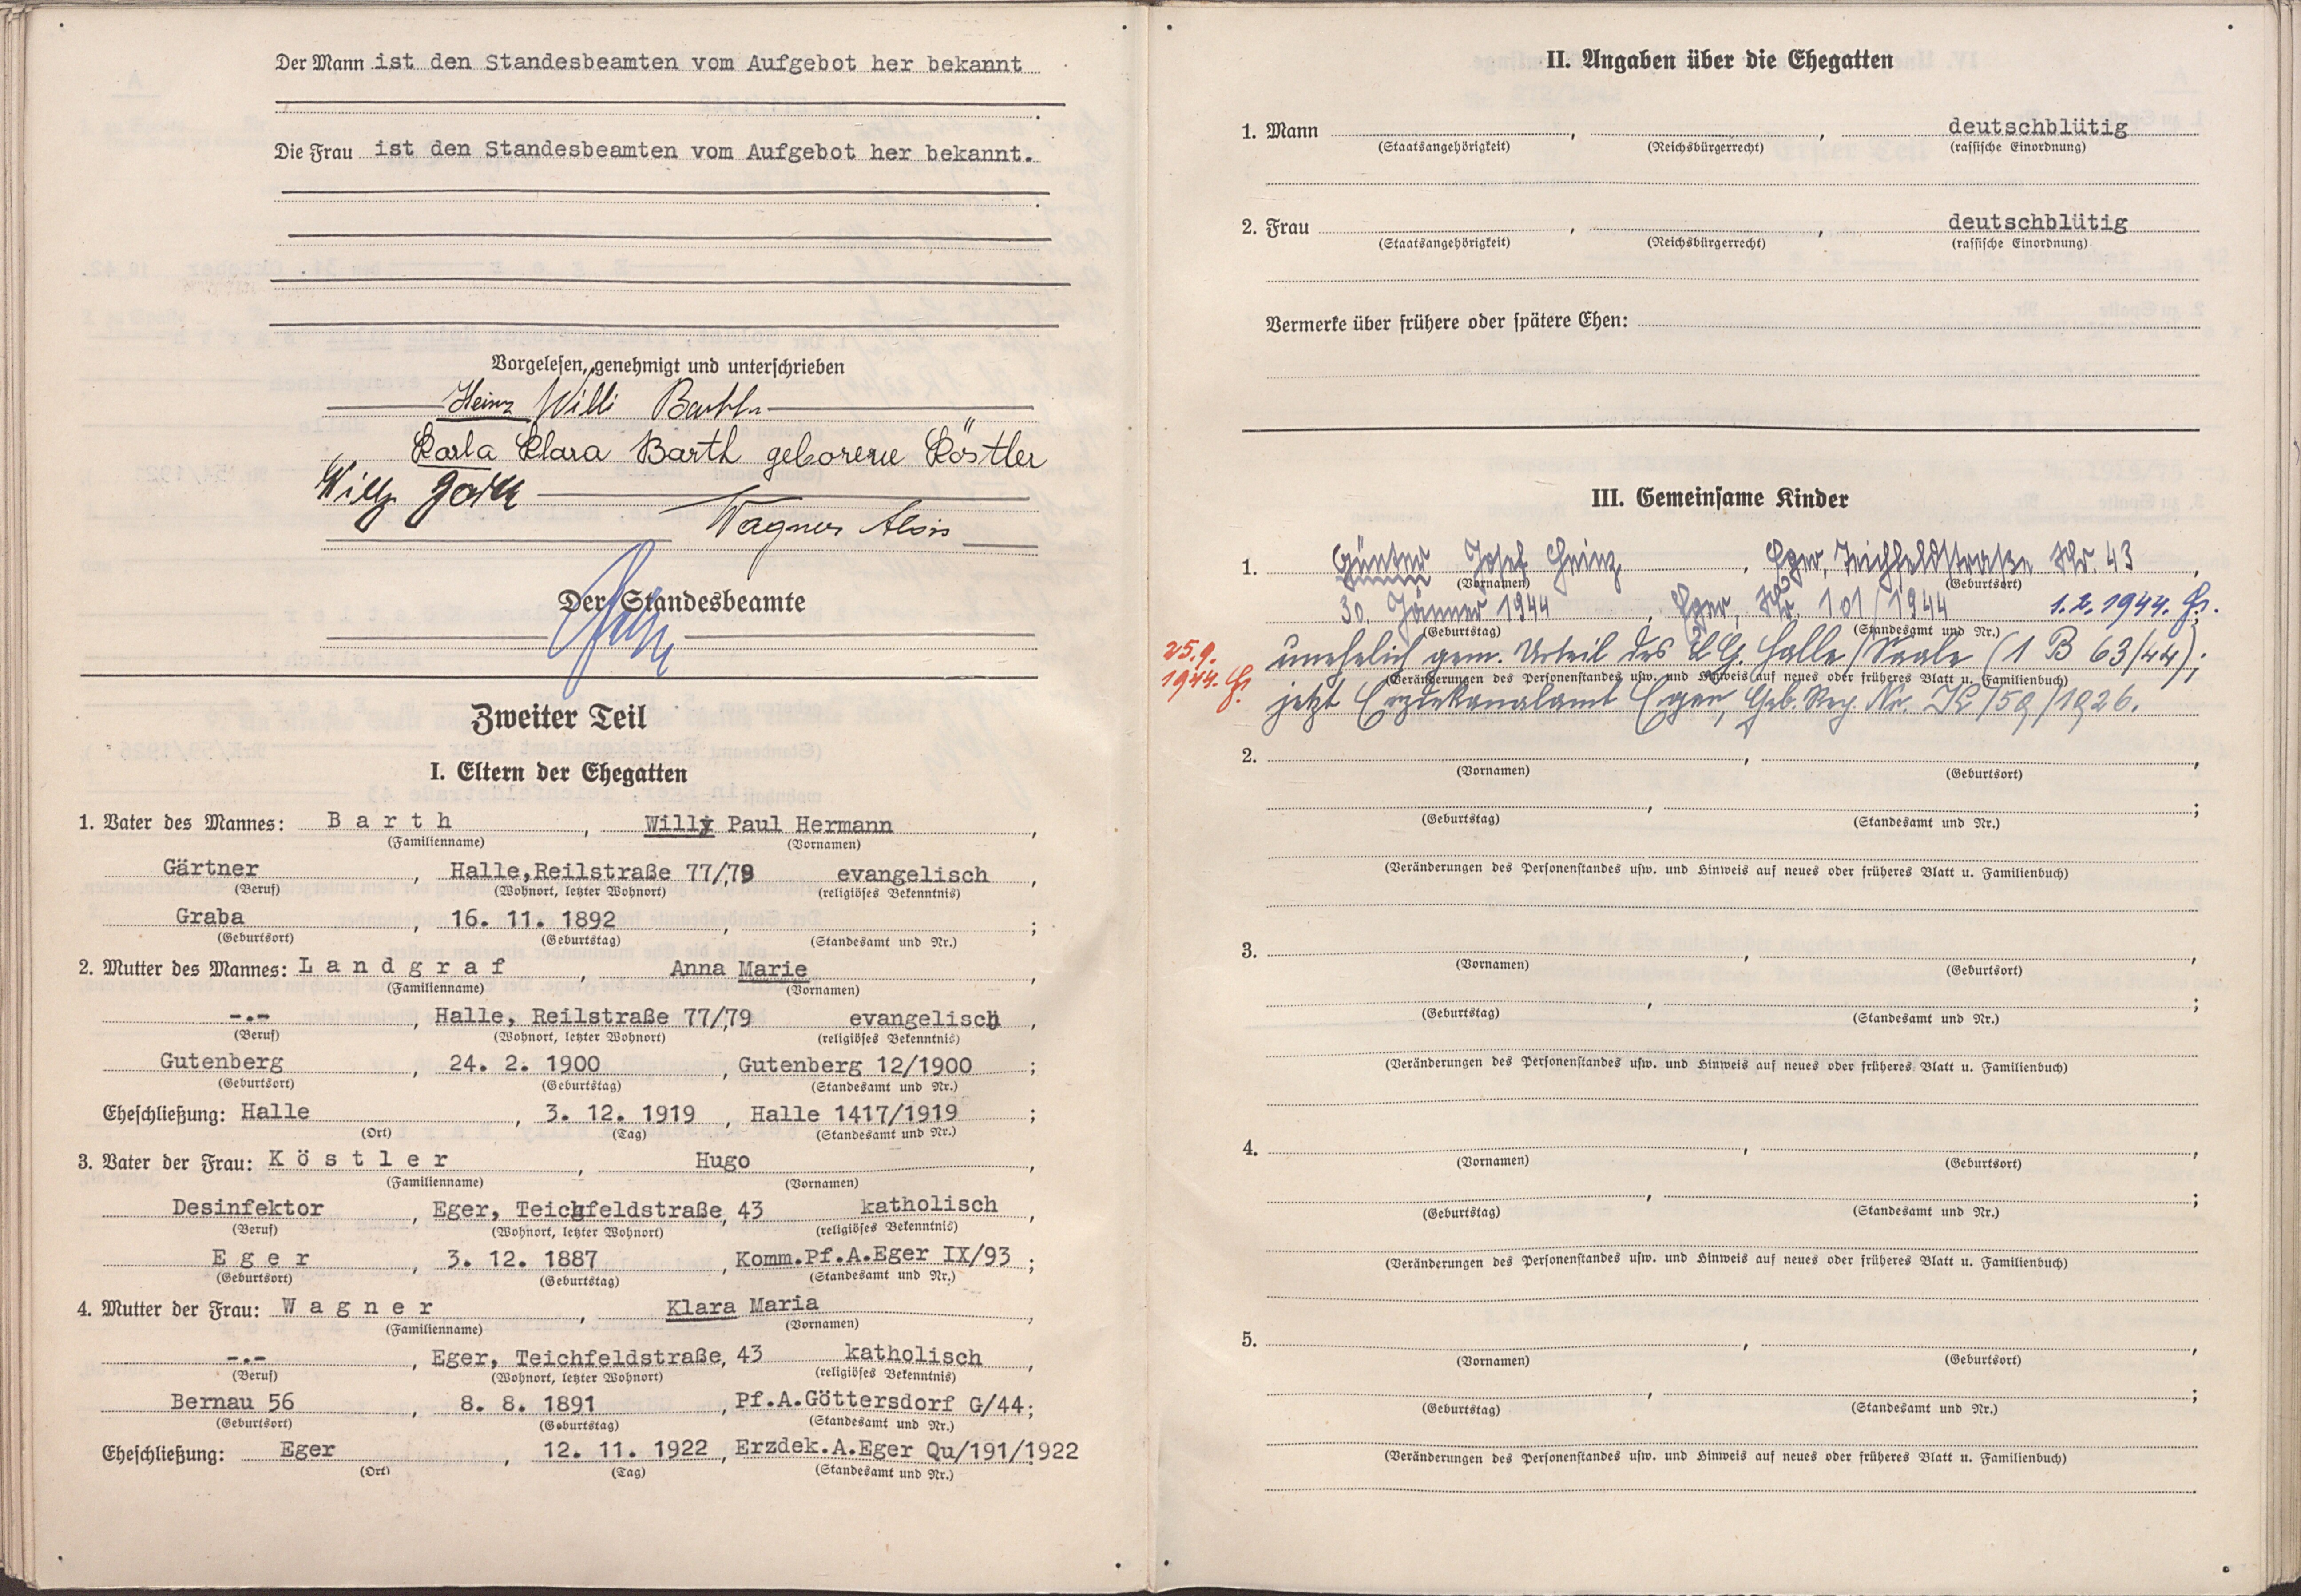 Der Mann ist den Standesbeamten vom Aufgebot her bekannt
Die Frau ist den Standesbeamten vom Aufgebot her bekannt.
Vorgelesen, genehmigt und unterschrieben
Heinz Willi Barth
Karla Klara Barth geborene Köstler
Wagner Alois
Der Standesbeamte
Zweiter Teil
I. Eltern der Ehegatten
1. Vater des Mannes: Barth, Willy Paul Hermann,
(Familienname) (Vornamen)
Gärtner, Halle, Reilstraße 77/79 evangelisch,
(Beruf) (Wohnort, letzter Wohnort) (religiöses Bekenntnis)
Graba, 16. 11. 1892, ;
(Geburtsort) (Geburtstag) (Standesamt und Nr.)
2. Mutter des Mannes: Landgraf, Anna Marie,
(Familienname) (Vornamen)
-.-, Halle, Reilstraße 77/79 evangelisch,
(Beruf) (Wohnort, letzter Wohnort) (religiöses Bekenntnis)
Gutenberg, 24. 2. 1900, Gutenberg 12/1900;
(Geburtsort) (Geburtstag) (Standesamt und Nr.)
Eheschließung: Halle, 3. 12. 1919, Halle 1417/1919;
(Ort) (Tag) (Standesamt und Nr.)
3. Vater der Frau: Köstler, Hugo,
(Familienname) (Vornamen)
Desinfektor, Eger, Teichfeldstraße, 43 katholisch,
(Beruf) (Wohnort, letzter Wohnort) (religiöses Bekenntnis)
Eger, 3. 12. 1887, Komm.Pf.A.Eger IX/93;
(Geburtsort) (Geburtstag) (Standesamt und Nr.)
4. Mutter der Frau: Wagner, Klara Maria,
(Familienname) (Vornamen)
-.-, Eger, Teichfeldstraße, 43 katholisch,
(Beruf) (Wohnort, letzter Wohnort) (religiöses Bekenntnis)
Bernau 56, 8. 8. 1891, Pf.A.Göttersdorf G/44;
(Geburtsort) (Geburtstag) (Standesamt und Nr.)
Eheschließung: Eger, 12. 11. 1922, Erzdek.A.Eger Qu/191/1922
(Ort) (Tag) (Standesamt und Nr.)
II. Angaben über die Ehegatten
1. Mann , , deutschblütig
(Staatsangehörigkeit) (Reichsbürgerrecht) (rassische Einordnung)
2. Frau , , deutschblütig
(Staatsangehörigkeit) (Reichsbürgerrecht) (rassische Einordnung)
Vermerke über frühere oder spätere Ehen:
III. Gemeinsame Kinder
1. Günter Josef Heinz, Eger, Teichfeldstraße Nr. 43,
(Vornamen) (Geburtsort)
30. Jänner 1944, Eger, Nr. 101/1944 1.2.1944.
(Geburtstag) (Standesamt und Nr.)
25.9. 1944. unehelich gem. Urteil des LG. Halle/Saale (1 B 63/44);
(Veränderungen des Personenstandes usw. und Hinweis auf neues oder früheres Blatt u. Familienbuch)
jetzt Erzdekanalamt Eger, Geb. Reg. Nr. K/59/1926.
2. , ,
(Vornamen) (Geburtsort)
, ;
(Geburtstag) (Standesamt und Nr.)
(Veränderungen des Personenstandes usw. und Hinweis auf neues oder früheres Blatt u. Familienbuch)
3. , ,
(Vornamen) (Geburtsort)
, ;
(Geburtstag) (Standesamt und Nr.)
(Veränderungen des Personenstandes usw. und Hinweis auf neues oder früheres Blatt u. Familienbuch)
4. , ,
(Vornamen) (Geburtsort)
, ;
(Geburtstag) (Standesamt und Nr.)
(Veränderungen des Personenstandes usw. und Hinweis auf neues oder früheres Blatt u. Familienbuch)
5. , ,
(Vornamen) (Geburtsort)
, ;
(Geburtstag) (Standesamt und Nr.)
(Veränderungen des Personenstandes usw. und Hinweis auf neues oder früheres Blatt u. Familienbuch)